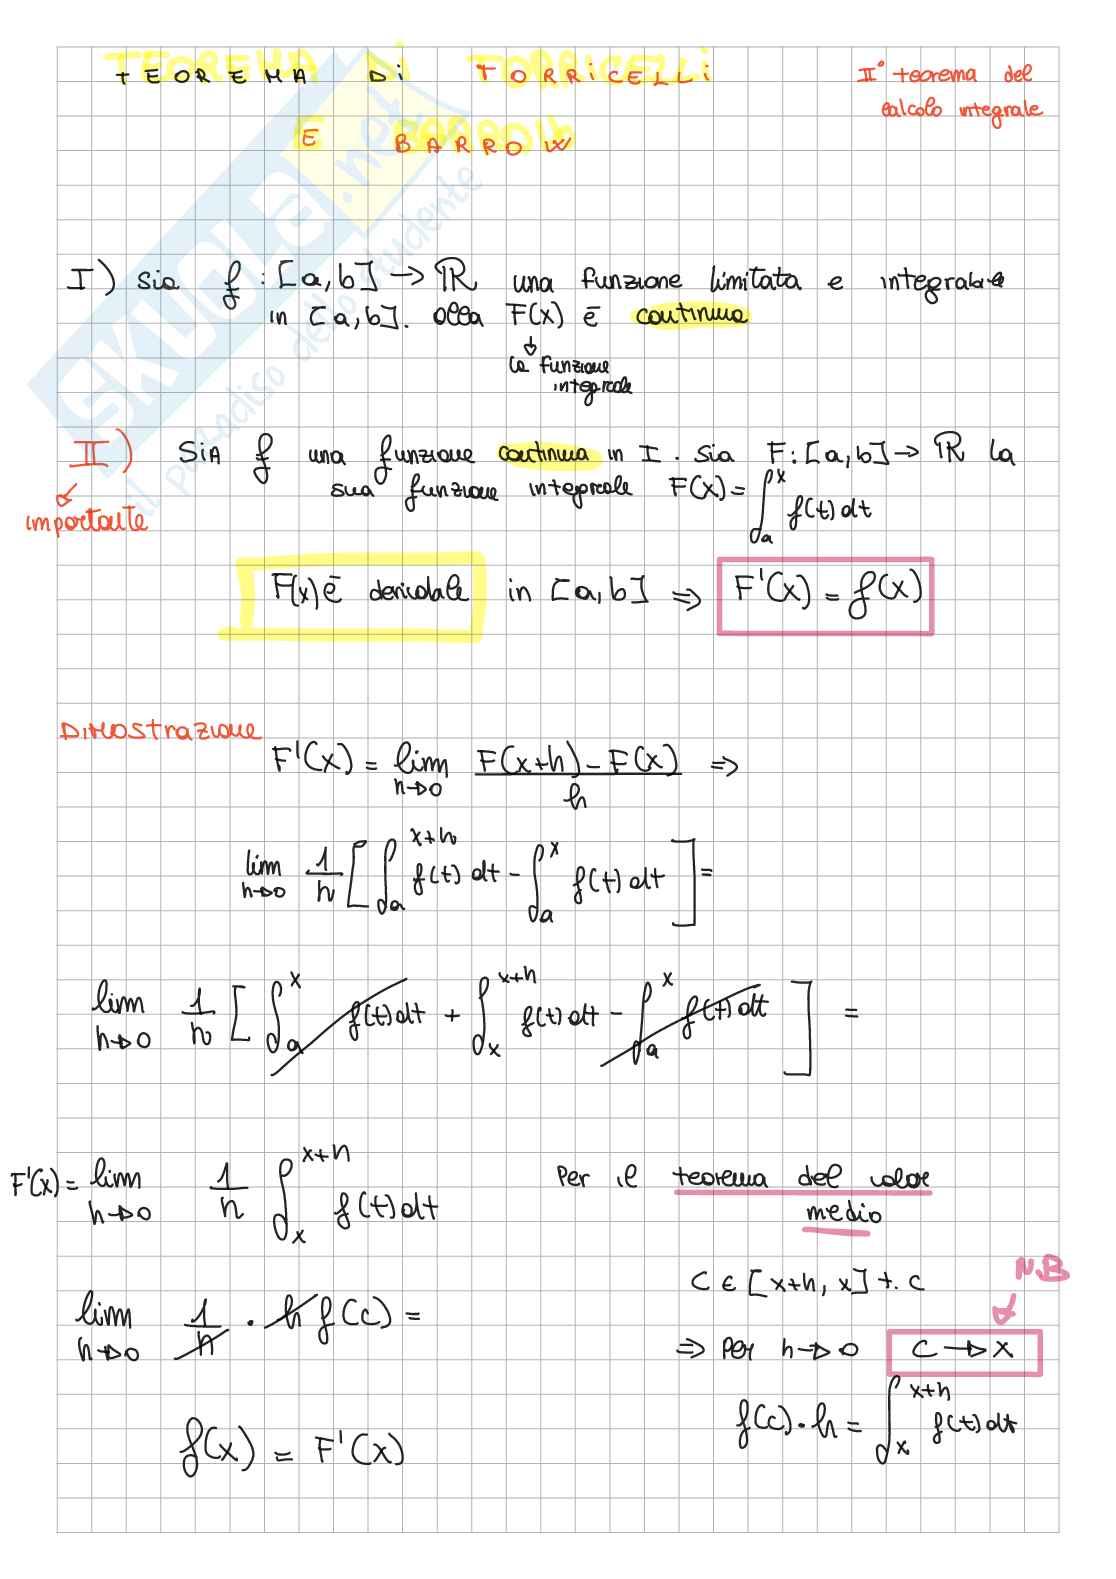 TEOREMA Di TORRiCELLi
E BARROW
II° teorema del
calcolo integrale
I) Sia f : [a,b] → ℝ una funzione limitata e integrabile
in [a,b]. allora F(x) è continua
↓
la funzione
integrale
II) SiA f una funzione continua in I. Sia F: [a,b] → ℝ la
sua funzione integrale F(x) = ∫_a^x f(t) dt
importante
F(x) è derivabile in [a,b] ⇒ F'(x) = f(x)
DiMOStrazione
F'(x) = lim_{h→0} (F(x+h) - F(x))/h ⇒
lim_{h→0} 1/h [∫_a^{x+h} f(t) dt - ∫_a^x f(t) dt] =
lim_{h→0} 1/h [∫_a^x f(t) dt + ∫_x^{x+h} f(t) dt - ∫_a^x f(t) dt] =
F'(x) = lim_{h→0} 1/h ∫_x^{x+h} f(t) dt
Per il teorema del valor
medio
lim_{h→0} 1/h · h f(c) =
f(x) = F'(x)
C ∈ [x+h, x] t.c
N.B
⇒ per h→0 C → x
f(c)·h = ∫_x^{x+h} f(t) dt
SKUOLA.net
il paradiso dello studente